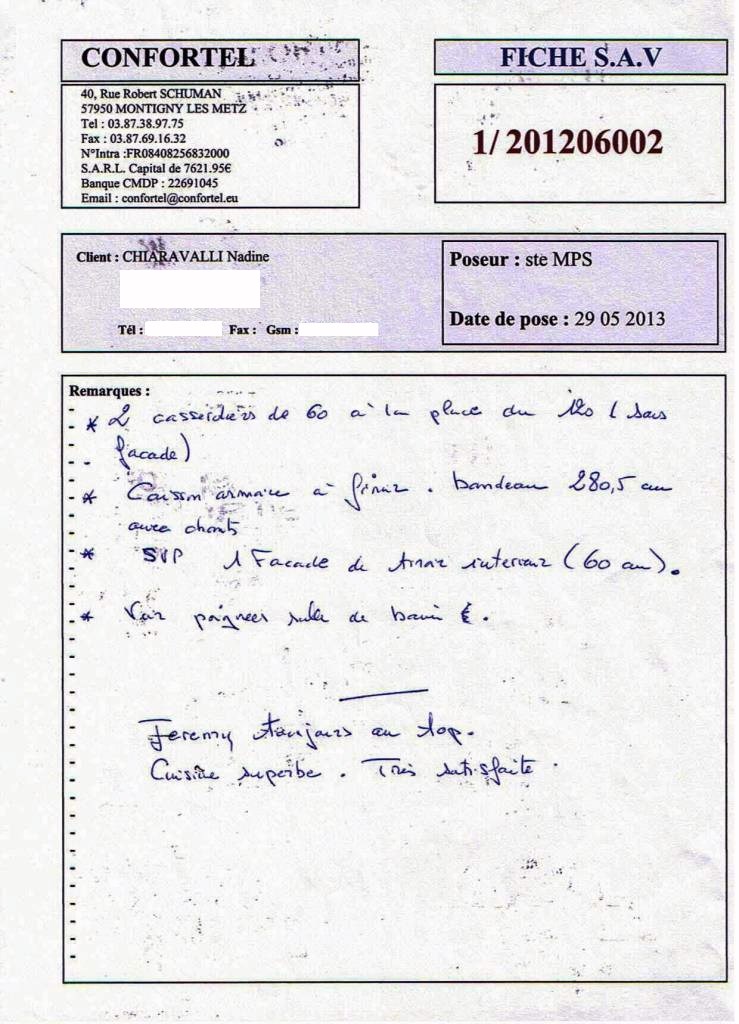 CONFORTEL
40, Rue Robert SCHUMAN
57950 MONTIGNY LES METZ
Tel : 03.87.38.97.75
Fax : 03.87.69.16.32
N°Intra :FR08408256832000
S.A.R.L. Capital de 7621.95€
Banque CMDP : 22691045
Email : confortel@confortel.eu
FICHE S.A.V
1/ 201206002
Client : CHIARAVALLI Nadine
Tél : Fax : Gsm :
Poseur : ste MPS
Date de pose : 29 05 2013
Remarques :
* 2 casseroliers de 60 à la place du 120 ( sans
façade)
* Caisson armoire à finir . bandeau 280,5 cm
avec chants
* SVP 1 Facade de tiroir interieur (60 cm).
* Voir poignees salle de bain €.
Jeremy toujours au top.
Cuisine superbe . Très satisfaite .